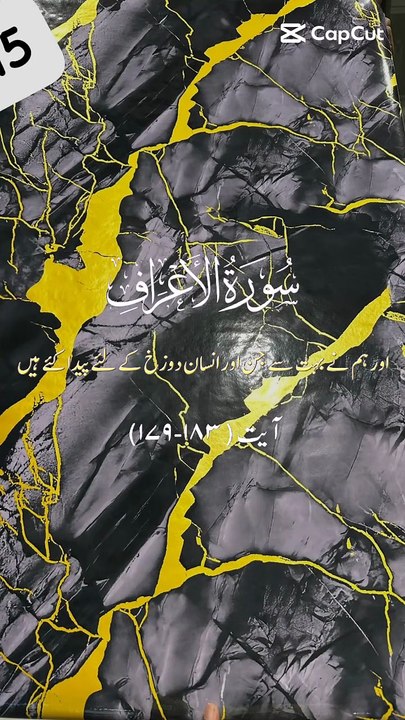 15
CapCut
سُورَةُ الْأَعْرَافِ
اور ہم نے بہت سے جن اور انسان دوزخ کے لئے پیدا کئے ہیں
آیت (۱۸۳-۱۷۹)